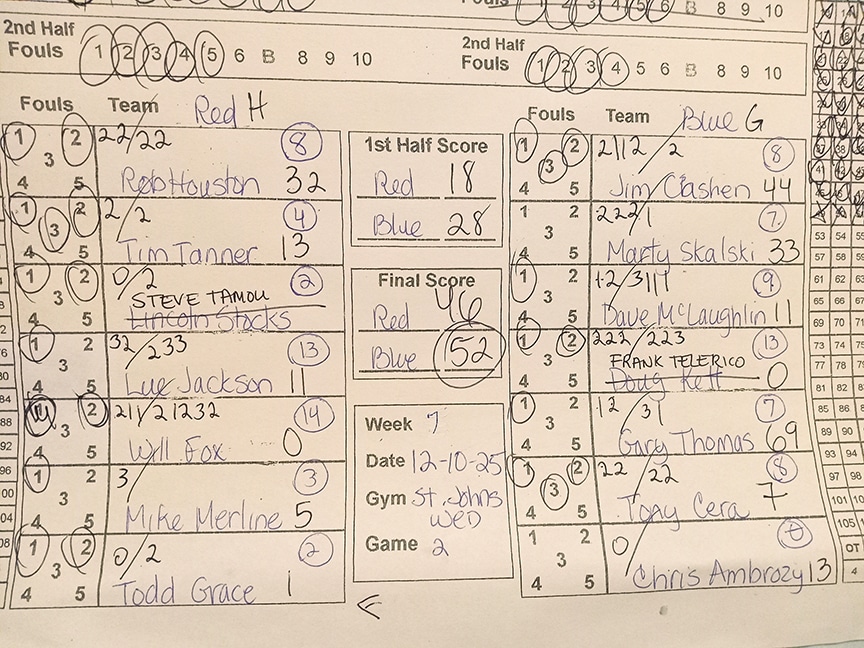 Fouls 1 2 3 4 5 6 B 8 9 10
2nd Half
Fouls 1 2 3 4 5 6 B 8 9 10
2nd Half
Fouls 1 2 3 4 5 6 B 8 9 10
Fouls Team Red H
1 2 3 4 5 22/22 8
Rob Houston 32
1 2 3 4 5 2/2 4
Tim Tanner 13
1 2 3 4 5 0/2 2
STEVE TAMOU
Lincoln Stocks
1 2 3 4 5 32/233 13
Lue Jackson 11
2 3 21/21232 14
Will Fox 0
1 2 3 4 5 3/ 3
Mike Merline 5
1 2 3 4 5 0/2 2
Todd Grace 1
1st Half Score
Red 18
Blue 28
Final Score
Red 46
Blue 52
Week 7
Date 12-10-25
Gym St. Johns
WED
Game 2
Fouls Team Blue G
1 2 3 4 5 2112/2 8
Jim Clashen 44
1 2 3 4 5 222/1 7
Marty Skalski 33
1 2 3 4 5 12/3111 9
Dave McLaughlin 11
1 2 3 4 5 222/223 13
FRANK TELERICO
Doug Kett 0
1 2 3 4 5 12/31 7
Gary Thomas 69
1 2 3 4 5 22/22 8
Tony Cera 7
1 2 3 4 5 0/ 0
Chris Ambrozy 13
53 54 55
57 58 59
61 62 63
65 66 67
69 70 71
73 74 75
77 78 79
81 82 83
85 86 87
89 90 91
93 94 95
97 98
101
105
OT
4